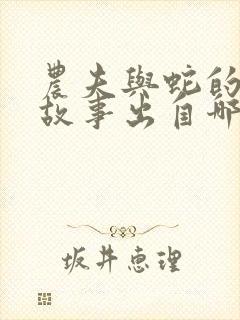 農夫與蛇的
故事出自哪
坂井恵理